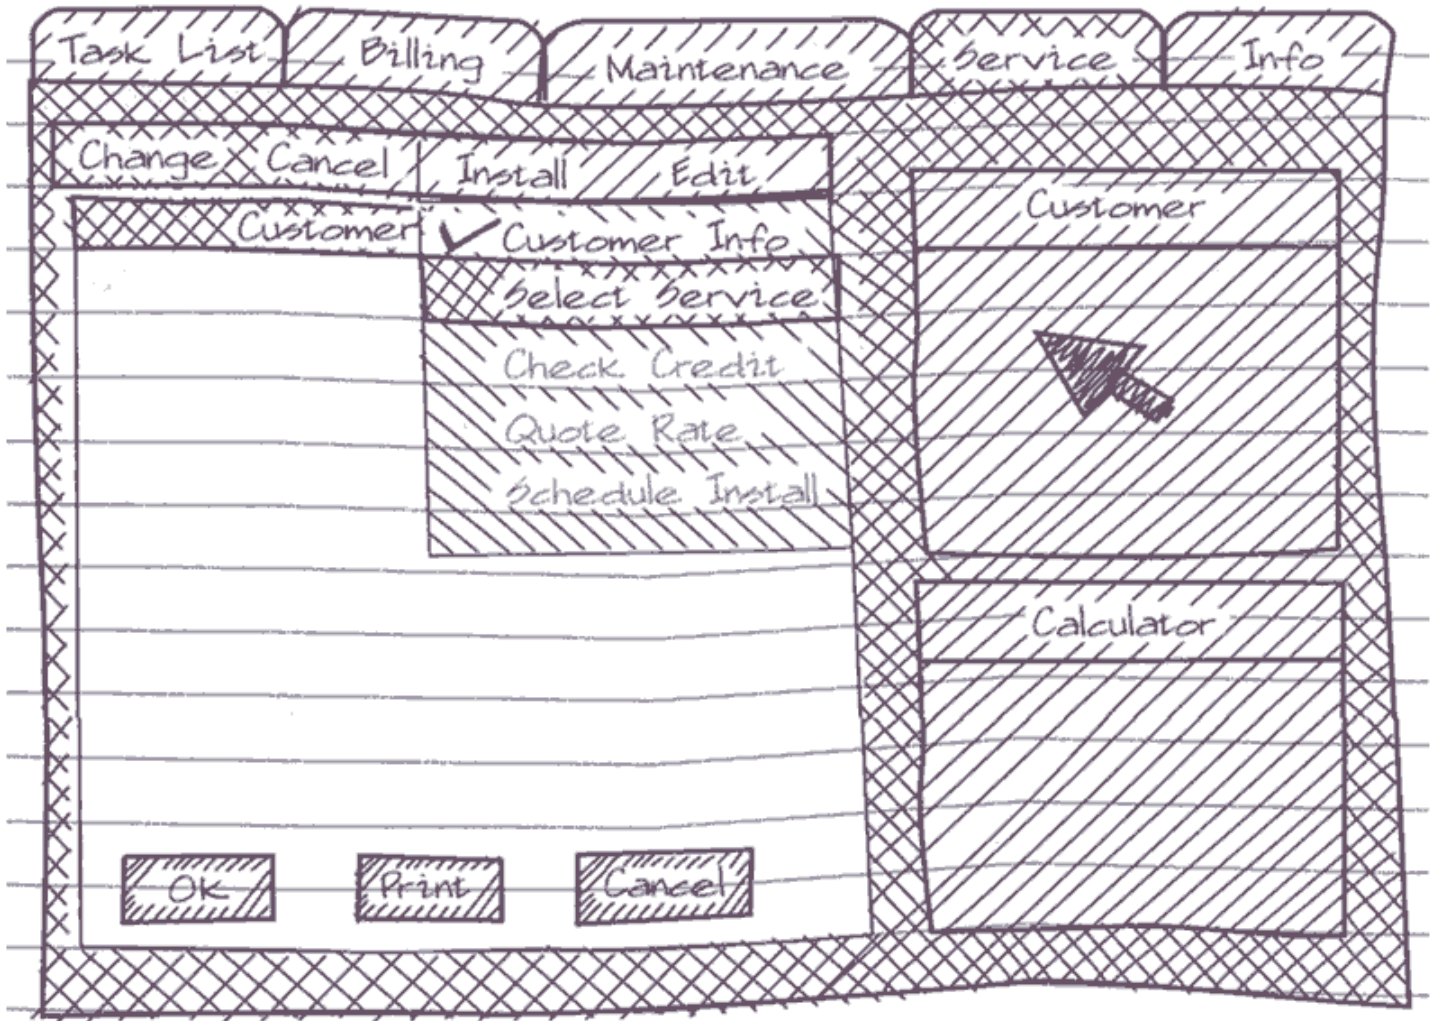 Task List Billing Maintenance Service Info
Change Cancel Install Edit
Customer
Customer Info
Select Service
Check Credit
Quote Rate
Schedule Install
Customer
Calculator
OK Print Cancel